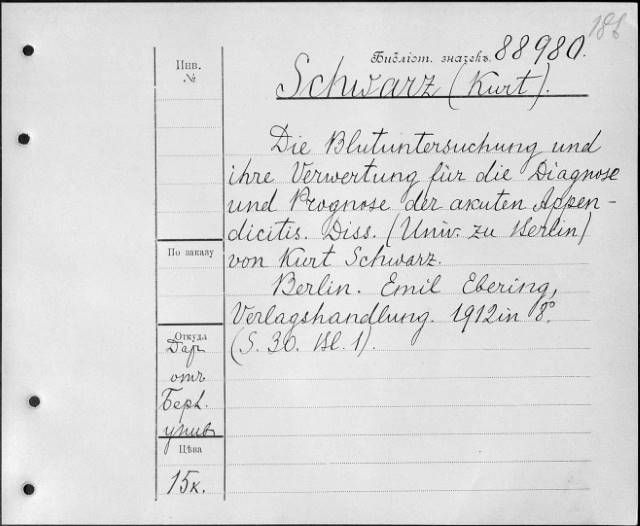 186
Библіот. значекъ. 88980.
Инв.
№
Schwarz (Kurt).
Die Blutuntersuchung und
ihre Verwertung für die Diagnose
und Prognose der akuten Appen-
dicitis. Diss. (Univ. zu Berlin)
von Kurt Schwarz.
Berlin. Emil Ebering,
Verlagshandlung. 1912 in 8°.
(S. 30. Bl. 1).
По заказу
Откуда
Дар
отъ
Берл.
унив
Цѣна
15к.